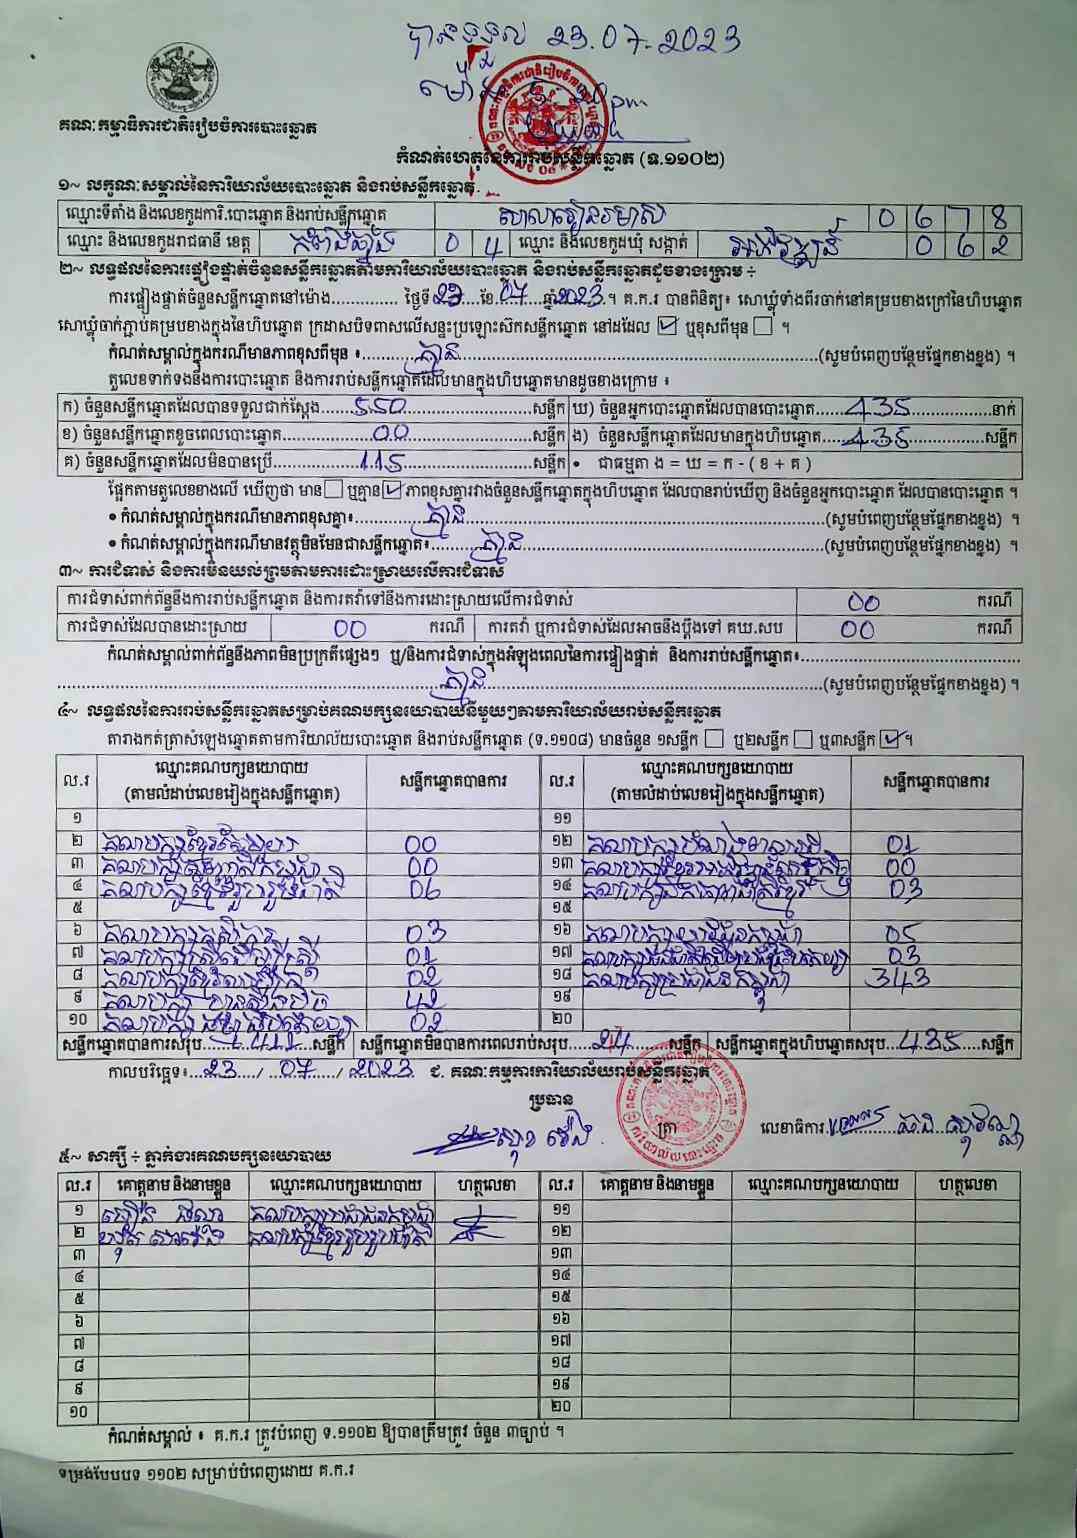 បានទទួល 23.07.2023
ម៉ោង
គណៈកម្មាធិការជាតិរៀបចំការបោះឆ្នោត
កំណត់ហេតុនៃការរាប់សន្លឹកឆ្នោត (ទ.១១០២)
១~ លក្ខណៈសម្គាល់នៃការិយាល័យបោះឆ្នោត និងរាប់សន្លឹកឆ្នោត
ឈ្មោះទីតាំង និងលេខកូដការិ.បោះឆ្នោត និងរាប់សន្លឹកឆ្នោត សាលារៀន 0 6 7 8
ឈ្មោះ និងលេខកូដរាជធានី ខេត្ត កំពង់ឆ្នាំង 0 4 ឈ្មោះ និងលេខកូដឃុំ សង្កាត់ 0 6 2
២~ លទ្ធផលនៃការផ្ទៀងផ្ទាត់ចំនួនសន្លឹកឆ្នោតតាមការិយាល័យបោះឆ្នោត និងរាប់សន្លឹកឆ្នោតដូចខាងក្រោម ÷
ការផ្ទៀងផ្ទាត់ចំនួនសន្លឹកឆ្នោតនៅម៉ោង.............. ថ្ងៃទី 23 ខែ 07 ឆ្នាំ 2023 ។ គ.ក.រ បានពិនិត្យ៖ សោឃ្លុំទាំងពីរចាក់នៅគម្របខាងក្រៅនៃហិបឆ្នោត
សោឃ្លុំចាក់ភ្ជាប់គម្របខាងក្នុងនៃហិបឆ្នោត ក្រដាសបិទពាសលើសន្ទះប្រឡោះស៊កសន្លឹកឆ្នោត នៅដដែល ☑ ឬខុសពីមុន ☐ ។
កំណត់សម្គាល់ក្នុងករណីមានភាពខុសពីមុន ៖ គ្មាន (សូមបំពេញបន្ថែមផ្នែកខាងខ្នង) ។
តួលេខទាក់ទងនឹងការបោះឆ្នោត និងការរាប់សន្លឹកឆ្នោតដែលមានក្នុងហិបឆ្នោតមានដូចខាងក្រោម ៖
ក) ចំនួនសន្លឹកឆ្នោតដែលបានទទួលជាក់ស្តែង 550 សន្លឹក ឃ) ចំនួនអ្នកបោះឆ្នោតដែលបានបោះឆ្នោត 435 នាក់
ខ) ចំនួនសន្លឹកឆ្នោតខូចពេលបោះឆ្នោត 00 សន្លឹក ង) ចំនួនសន្លឹកឆ្នោតដែលមានក្នុងហិបឆ្នោត 435 សន្លឹក
គ) ចំនួនសន្លឹកឆ្នោតដែលមិនបានប្រើ 115 សន្លឹក • ជាធម្មតា ង = ឃ = ក - ( ខ + គ )
ផ្អែកតាមតួលេខខាងលើ ឃើញថា មាន ☐ ឬគ្មាន ☑ ភាពខុសគ្នារវាងចំនួនសន្លឹកឆ្នោតក្នុងហិបឆ្នោត ដែលបានរាប់ឃើញ និងចំនួនអ្នកបោះឆ្នោត ដែលបានបោះឆ្នោត ។
• កំណត់សម្គាល់ក្នុងករណីមានភាពខុសគ្នា៖ គ្មាន (សូមបំពេញបន្ថែមផ្នែកខាងខ្នង) ។
• កំណត់សម្គាល់ក្នុងករណីមានវត្ថុមិនមែនជាសន្លឹកឆ្នោត៖ គ្មាន (សូមបំពេញបន្ថែមផ្នែកខាងខ្នង) ។
៣~ ការជំទាស់ និងការមិនយល់ព្រមតាមការដោះស្រាយលើការជំទាស់
ការជំទាស់ពាក់ព័ន្ធនឹងការរាប់សន្លឹកឆ្នោត និងការតវ៉ាទៅនឹងការដោះស្រាយលើការជំទាស់ 00 ករណី
ការជំទាស់ដែលបានដោះស្រាយ 00 ករណី ការតវ៉ា ឬការជំទាស់ដែលអាចនឹងប្តឹងទៅ គឃ.សប 00 ករណី
កំណត់សម្គាល់ពាក់ព័ន្ធនឹងភាពមិនប្រក្រតីផ្សេងៗ ឬ/និងការជំទាស់ក្នុងអំឡុងពេលនៃការផ្ទៀងផ្ទាត់ និងការរាប់សន្លឹកឆ្នោត៖
គ្មាន (សូមបំពេញបន្ថែមផ្នែកខាងខ្នង) ។
៤~ លទ្ធផលនៃការរាប់សន្លឹកឆ្នោតសម្រាប់គណបក្សនយោបាយនីមួយៗតាមការិយាល័យរាប់សន្លឹកឆ្នោត
តារាងកត់ត្រាសំឡេងឆ្នោតតាមការិយាល័យបោះឆ្នោត និងរាប់សន្លឹកឆ្នោត (ទ.១១០៨) មានចំនួន ១សន្លឹក ☐ ឬ២សន្លឹក ☐ ឬ៣សន្លឹក ☑ ។
ល.រ ឈ្មោះគណបក្សនយោបាយ សន្លឹកឆ្នោតបានការ ល.រ ឈ្មោះគណបក្សនយោបាយ សន្លឹកឆ្នោតបានការ
(តាមលំដាប់លេខរៀងក្នុងសន្លឹកឆ្នោត) (តាមលំដាប់លេខរៀងក្នុងសន្លឹកឆ្នោត)
១ ១១
២ គណបក្ស 00 ១២ គណបក្ស 01
៣ គណបក្ស 00 ១៣ គណបក្ស 00
៤ គណបក្ស 06 ១៤ គណបក្ស 03
៥ ១៥
៦ គណបក្ស 03 ១៦ គណបក្ស 05
៧ គណបក្ស 01 ១៧ គណបក្ស 03
៨ គណបក្ស 02 ១៨ គណបក្សប្រជាជនកម្ពុជា 343
៩ គណបក្ស 42 ១៩
១០ គណបក្ស 02 ២០
សន្លឹកឆ្នោតបានការសរុប 411 សន្លឹក សន្លឹកឆ្នោតមិនបានការពេលរាប់សរុប 24 សន្លឹក សន្លឹកឆ្នោតក្នុងហិបឆ្នោតសរុប 435 សន្លឹក
កាលបរិច្ឆេទ៖ 23 / 07 / 2023 ជ. គណៈកម្មការការិយាល័យរាប់សន្លឹកឆ្នោត
ប្រធាន
ត្រា លេខាធិការ
៥~ សាក្សី ÷ ភ្នាក់ងារគណបក្សនយោបាយ
ល.រ គោត្តនាម និងនាមខ្លួន ឈ្មោះគណបក្សនយោបាយ ហត្ថលេខា ល.រ គោត្តនាម និងនាមខ្លួន ឈ្មោះគណបក្សនយោបាយ ហត្ថលេខា
១ គណបក្សប្រជាជនកម្ពុជា ១១
២ គណបក្ស ១២
៣ ១៣
៤ ១៤
៥ ១៥
៦ ១៦
៧ ១៧
៨ ១៨
៩ ១៩
១០ ២០
កំណត់សម្គាល់ ៖ គ.ក.រ ត្រូវបំពេញ ទ.១១០២ ឱ្យបានត្រឹមត្រូវ ចំនួន ៣ច្បាប់ ។
ទម្រង់បែបបទ ១១០២ សម្រាប់បំពេញដោយ គ.ក.រ